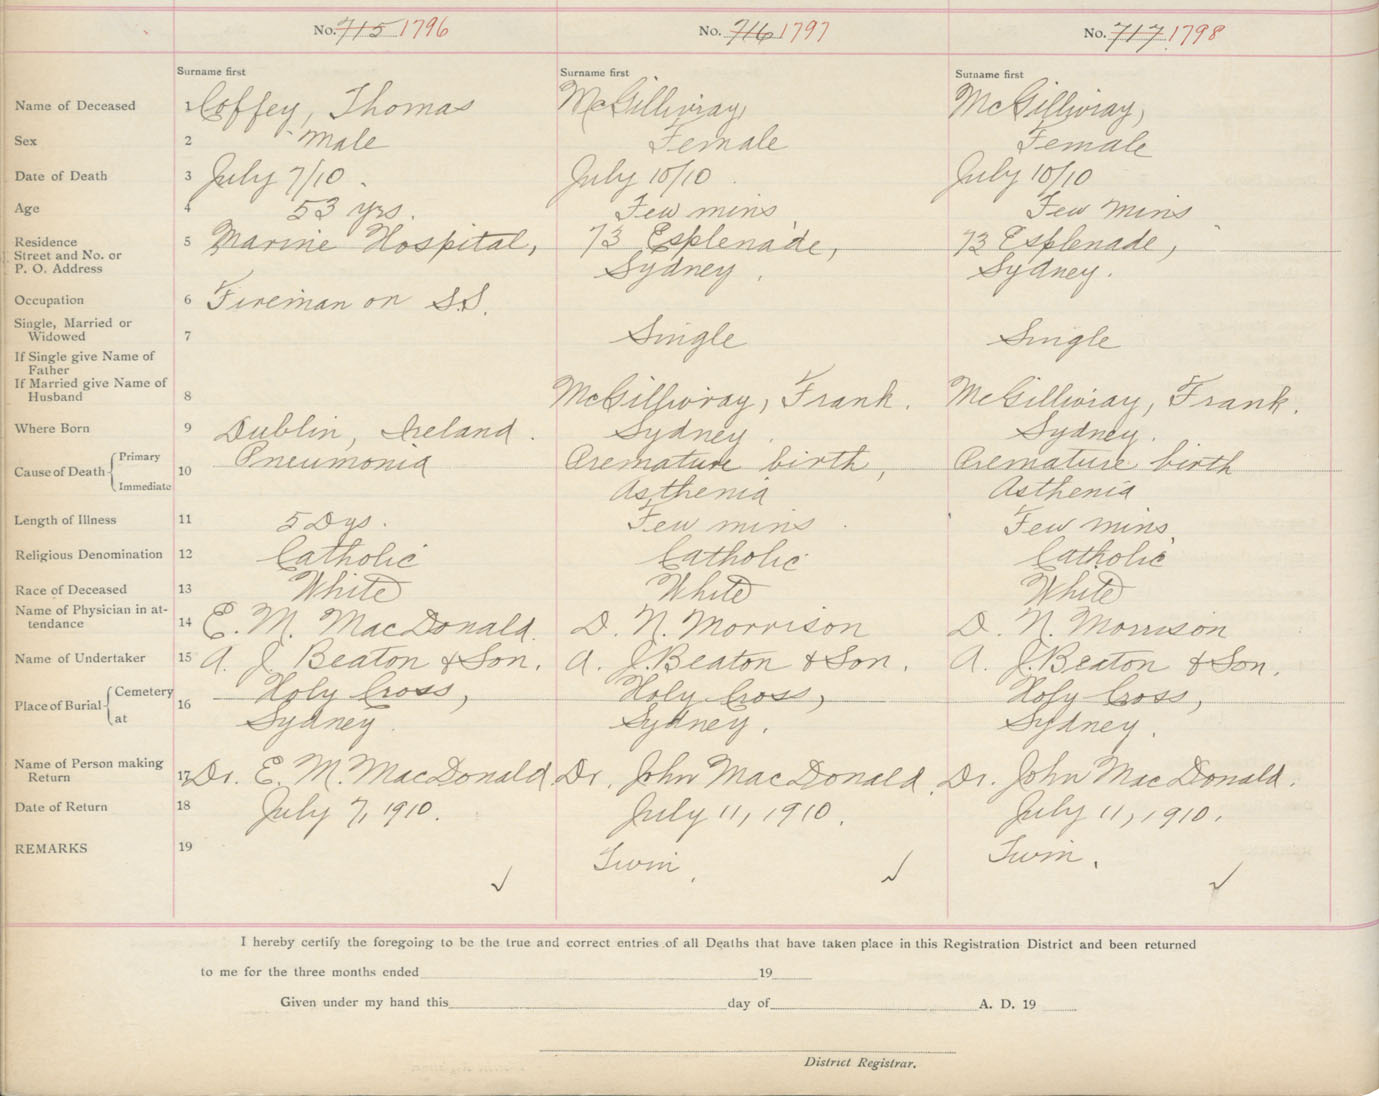 No. 715 1796 No. 716 1797 No. 717 1798
Surname first Surname first Surname first
Name of Deceased 1 Coffey, Thomas McGillivray, McGillivray,
Sex 2 Male Female Female
Date of Death 3 July 7/10. July 10/10. July 10/10
Age 4 53 yrs. Few mins. Few mins
Residence 5 Marine Hospital, 73 Esplenade, 73 Esplenade,
Street and No. or
P. O. Address Sydney. Sydney.
Occupation 6 Fireman on S.S.
Single, Married or
Widowed 7 Single Single
If Single give Name of
Father
If Married give Name of
Husband 8 McGillivray, Frank. McGillivray, Frank.
Where Born 9 Dublin, Ireland. Sydney. Sydney.
Cause of Death Primary 10 Pneumonia Premature birth, Premature birth
Immediate Asthenia Asthenia
Length of Illness 11 5 Dys. Few mins. Few mins
Religious Denomination 12 Catholic Catholic Catholic
Race of Deceased 13 White White White
Name of Physician in at-
tendance 14 E. M. MacDonald. D. N. Morrison D. N. Morrison
Name of Undertaker 15 A. J. Beaton & Son. A. J. Beaton & Son. A. J. Beaton & Son.
Place of Burial Cemetery 16 Holy Cross, Holy Cross, Holy Cross,
at Sydney. Sydney. Sydney.
Name of Person making
Return 17 Dr. E. M. MacDonald Dr. John MacDonald. Dr. John MacDonald.
Date of Return 18 July 7, 1910. July 11, 1910. July 11, 1910.
REMARKS 19 Twin. Twin.
I hereby certify the foregoing to be the true and correct entries of all Deaths that have taken place in this Registration District and been returned
to me for the three months ended 19
Given under my hand this day of A. D. 19
District Registrar.